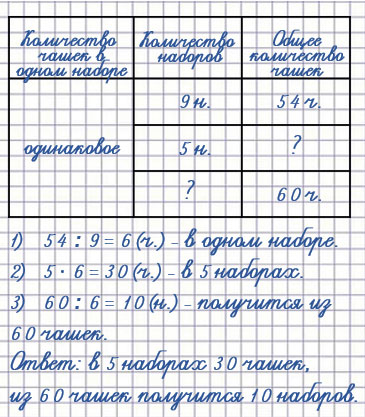 Количество чашек в одном наборе
Количество наборов
Общее количество чашек
одинаковое
9 н.
54 ч.
5 н.
?
?
60 ч.
1) 54 : 9 = 6 (ч.) – в одном наборе.
2) 5 · 6 = 30 (ч.) – в 5 наборах.
3) 60 : 6 = 10 (н.) – получится из
60 чашек.
Ответ: в 5 наборах 30 чашек,
из 60 чашек получится 10 наборов.